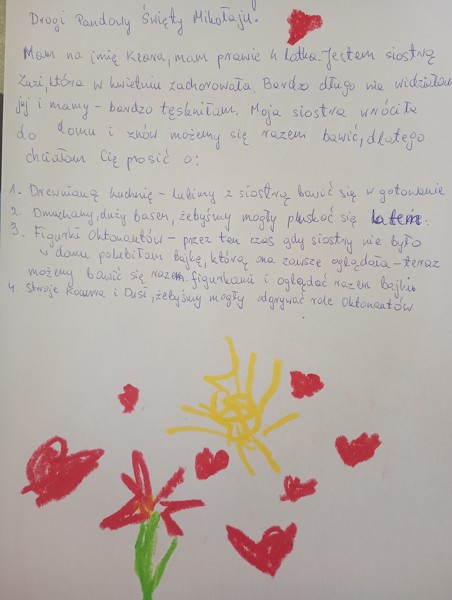 Drogi Pandowy Święty Mikołaju.
Mam na imię Klara, mam prawie 4 latka. Jestem siostrą
Zuzi, która w kwietniu zachorowała. Bardzo długo nie widziałam
jej i mamy - bardzo tęskniłam. Moja siostra wróciła
do domu i znów możemy się razem bawić, dlatego
chciałam Cię prosić o:
1. Drewnianą kuchnię - lubimy z siostrą bawić się w gotowanie
2. Dmuchany, duży basen, żebyśmy mogły pluskać się latem.
3. Figurki Oktonautów - przez ten czas gdy siostry nie było
w domu polubiłam bajkę, którą ona zawsze oglądała - teraz
możemy bawić się razem figurkami i oglądać razem bajki
4. Stroje i Dusi, żebyśmy mogły odgrywać role Oktonautów